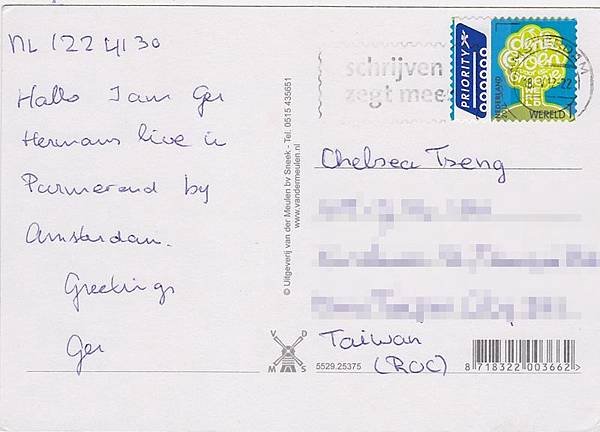 NL 1224130
Hallo I am Ger
Hermans live in
Purmerend by
Amsterdam.
Greetings
Ger
© Uitgeverij van der Meulen bv Sneek - Tel. 0515 435651
www.vandermeulen.nl
V D
M S
schrijven
zegt meer
PRIORITY
NEDERLAND
WERELD 1
Chelsea Tseng
Taiwan
(ROC)
5529.25375
8 718322 003662 >